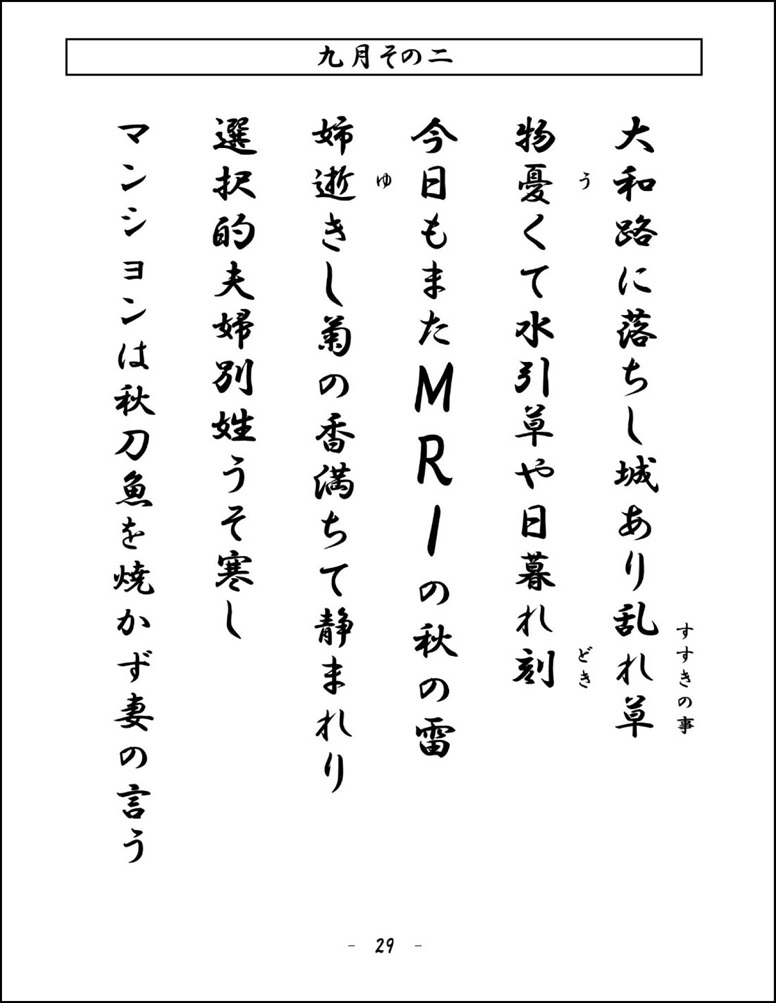 九月その二
大和路に落ちし城あり乱れ草
すすきの事
物憂くて水引草や日暮れ刻
う
どき
今日もまたMRIの秋の雷
姉逝きし菊の香満ちて静まれり
ゆ
選択的夫婦別姓うそ寒し
マンションは秋刀魚を焼かず妻の言う
- 29 -